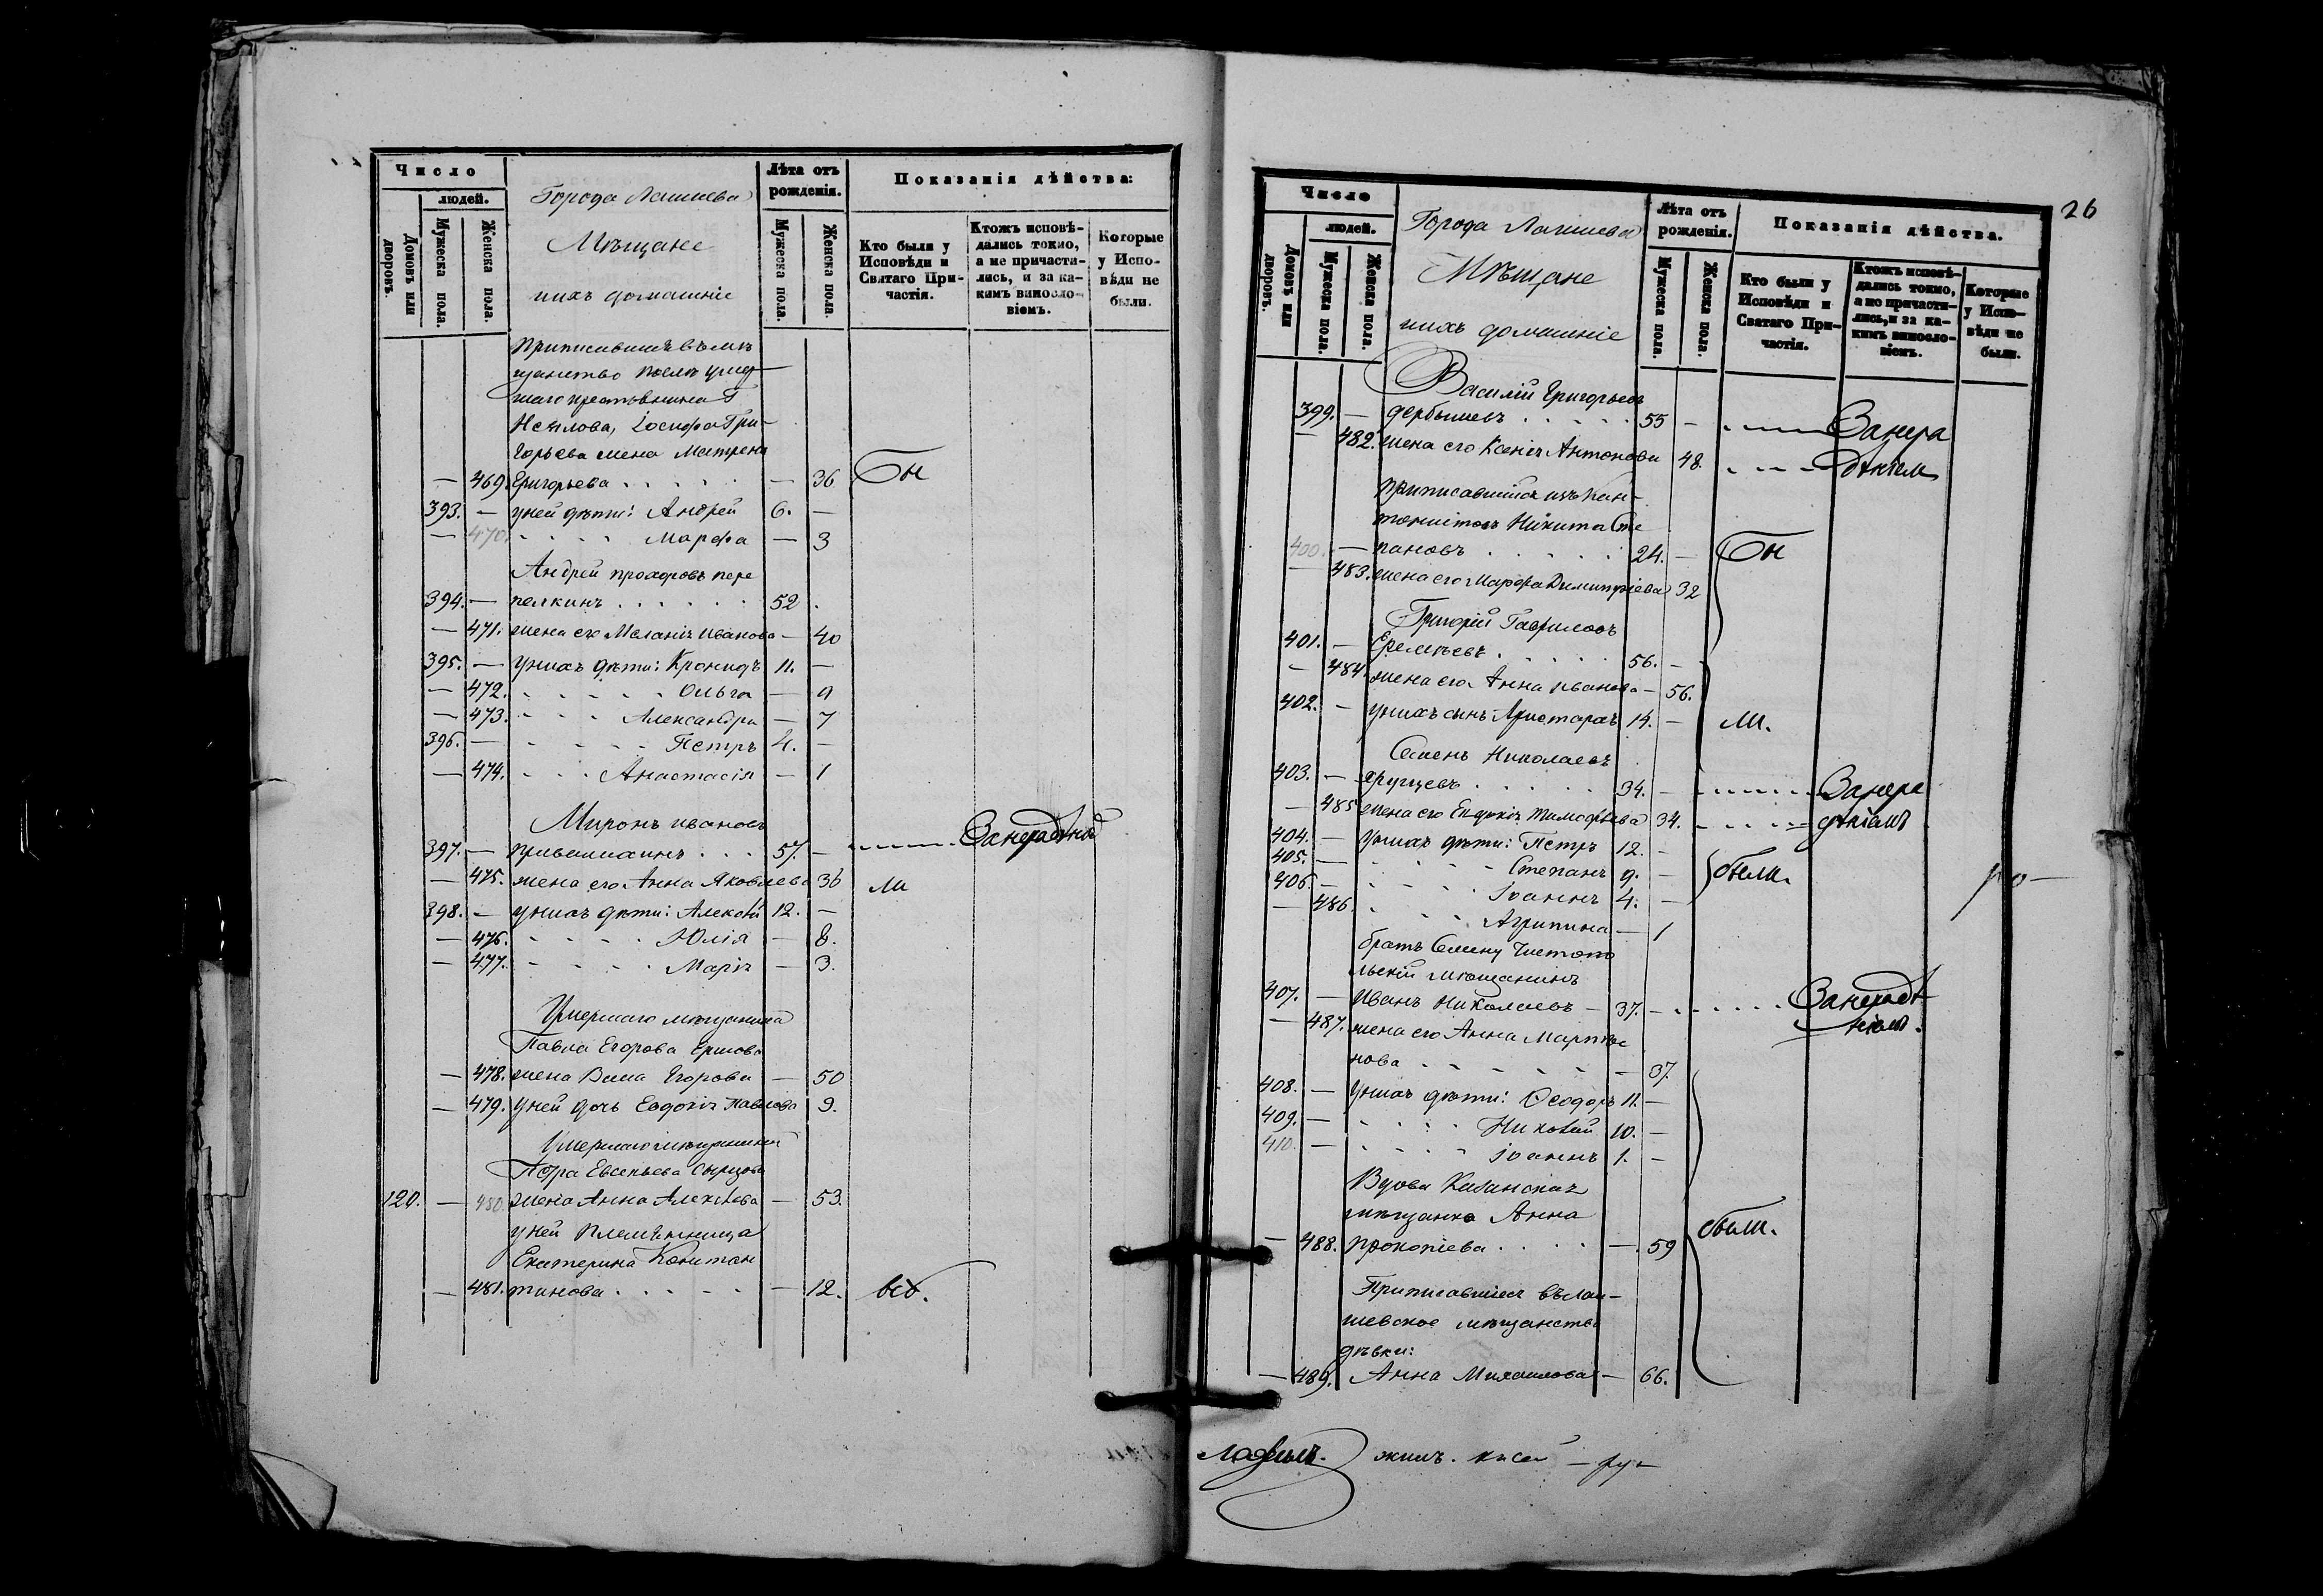 Число
людей.
Домовъ или дворовъ.
Мужеска пола.
Женска пола.
Города Лаишева
Мѣщане
ихъ домашніе
Лѣта отъ рожденія.
Мужеска пола.
Женска пола.
Показанія дѣйства:
Кто были у Исповѣди и Святаго Причастія.
Ктожъ исповѣдались токмо, а не причастились, и за какимъ винословіемъ.
Которые у Исповѣди не были.
Приписавшіеся въ мѣ-
щанство послѣ умер-
шаго крестьянина Г.
Іосифа Гри-
горьева жена Матрена
— 469. Григорьева . . . . . — 36 Бы
393. — у ней дѣти: Андрей 6. —
— 470. - - - - Марфа — 3
Андрей Прохоровъ Пере
394. — пелкинъ . . . . . . 52 .
— 471. жена его Меланія Иванова — 40
395. — у нихъ дѣти: Кронидъ 11. —
— 472. - - - - - Ольга — 9
— 473. - - - Александра — 7
396. — - - - - - Петръ 4. —
— 474. - - - Анастасія — 1
Миронъ Ивановъ
397. — . . . 57. — Занерадѣніемъ
— 475. жена его Анна Яковлева 36 ли
398. — у нихъ дѣти: Алексѣй 12. —
— 476. - - - - Юлія — 8.
— 477. - - - - Марія — 3.
Умершаго мѣщанина
Павла Егорова Ершова
— 478. жена Васса Егорова — 50
— 479. у ней дочь Евдокія Павлова 9.
Умершаго мѣщанина
Евсевьева Сырцова
120. — 480. жена Анна Алексѣева — 53.
у ней племянница
Екатерина Констан
— 481. тинова . . . . . — 12. всѣ.
26
Число
людей.
Домовъ или дворовъ.
Мужеска пола.
Женска пола.
Города Лаишева
Мѣщане
ихъ домашніе
Лѣта отъ рожденія.
Мужеска пола.
Женска пола.
Показанія дѣйства.
Кто были у Исповѣди и Святаго Причастія.
Ктожъ исповѣдались токмо, а не причастились, и за какимъ винословіемъ.
Которые у Исповѣди не были.
Василій Григорьевъ
399. — Дербышевъ . . . . . 55 — Занера
— 482. жена его Ксенія Антонова 48. дѣніем
Приписавшійся изъ Кан-
тонистовъ Никита Сте
400. — пановъ . . . . . 24. — Бы
— 483. жена его Марфа Димитріева 32
Григорій Гавриловъ
401. — Еремѣевъ . . . . . 56. —
— 484. жена его Анна Иванова — 56.
402. — у нихъ сынъ Аристархъ 14. — ли.
Семенъ Николаевъ
403. — . . . . . 34. — Занера
— 485 жена его Евдокія Тимофѣева 34. дѣніемъ
404. — у нихъ дѣти: Петръ 12. —
405. — - - - - Степанъ 9. — были.
406 — - - - - Іоаннъ 4. —
— 486. - - - Агрипина — 1
братъ Семену Чистопо
льскій мѣщанинъ
407. — Иванъ Николаевъ — 37. — Занерадѣ
ніем.
— 487. жена его Анна Марты
нова - - - - - — 37.
408. — у нихъ дѣти: Ѳеодоръ 11. —
409. — - - - - Николай 10. —
410. — - - - - Іоаннъ 1. —
Вдова Казанская
мѣщанка Анна
— 488. Прокопіева . . . . — 59 были.
Приписавшіеся въ Лаи-
шевское мѣщанство
дѣвки:
— 489. Анна Михаилова — 66.